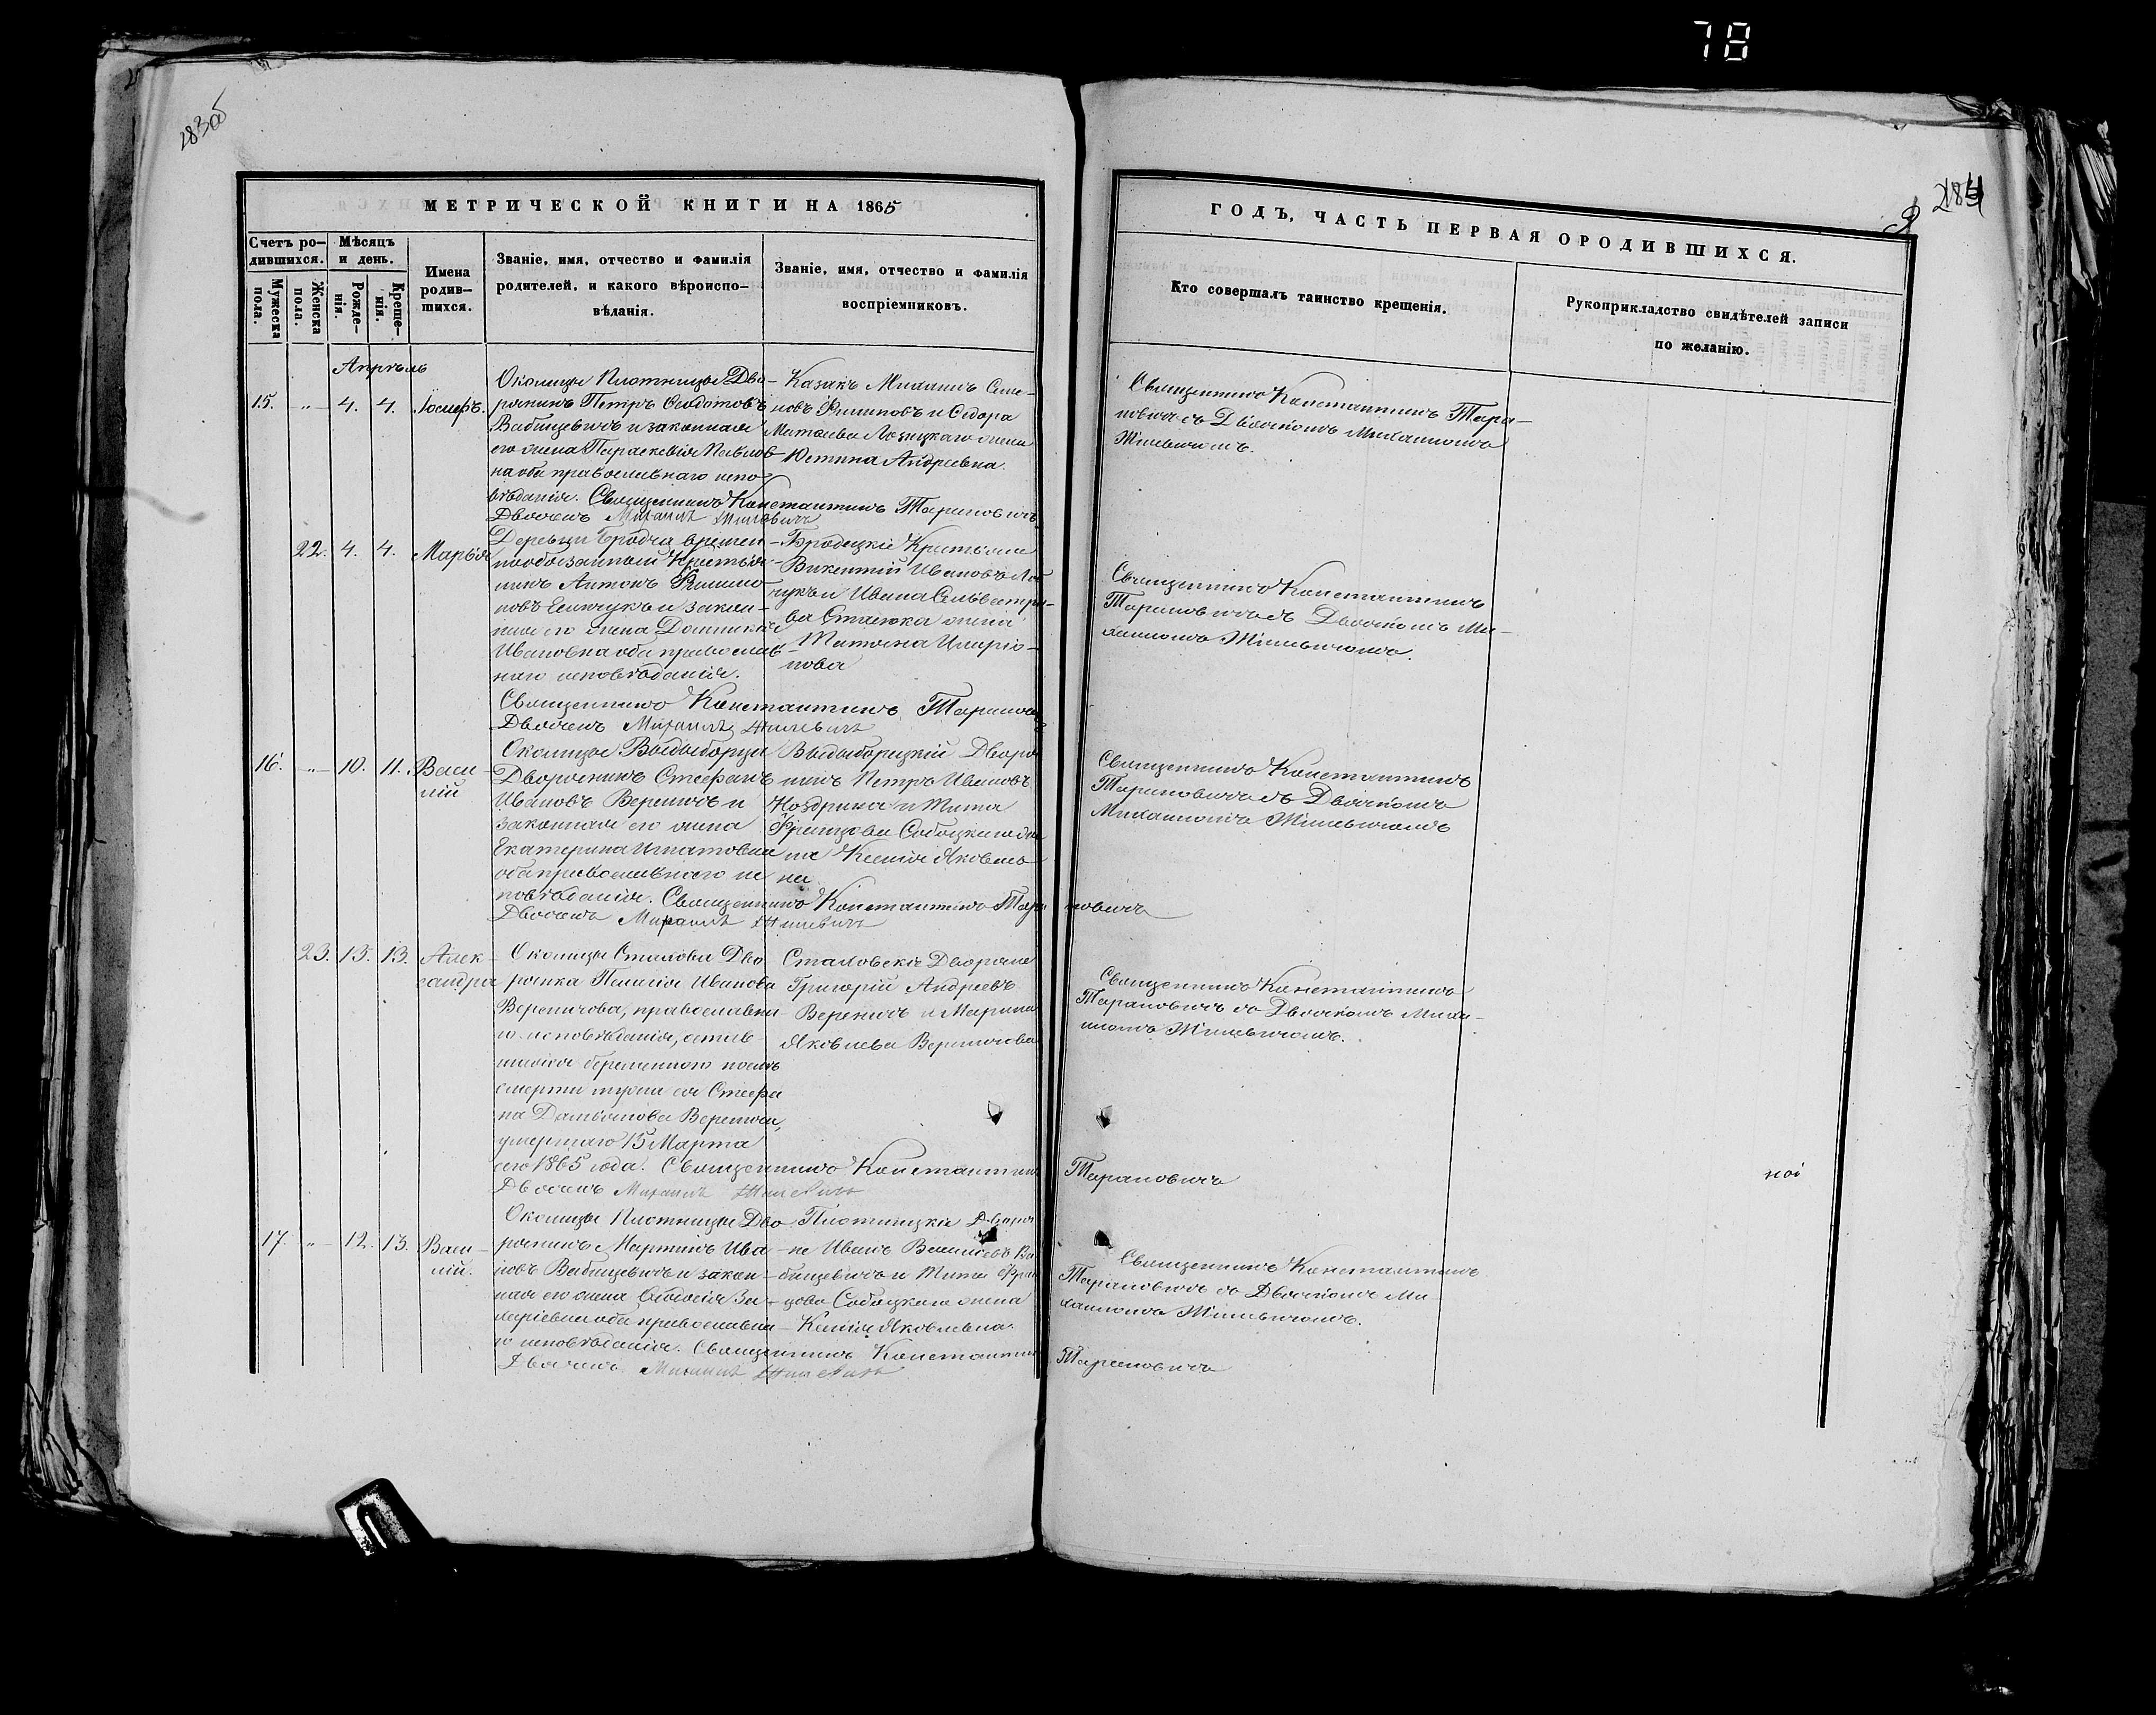 78
183об
184
МЕТРИЧЕСКОЙ КНИГИ НА 1865
Счетъ ро-
дившихся.
Мужеска
пола.
Женска
пола.
Мѣсяцъ
и день.
Рожде-
нія.
Креще-
нія.
Имена
родив-
шихся.
Званіе, имя, отчество и фамилія
родителей, и какого вѣроиспо-
вѣданія.
Званіе, имя, отчество и фамилія
воспріемниковъ.
ГОДЪ, ЧАСТЬ ПЕРВАЯ О РОДИВШИХСЯ.
Кто совершалъ таинство крещенія.
Рукоприкладство свидѣтелей записи
по желанію.
Апрѣль
15. -"- 4. 4. Іосифъ.
Околицы Плотницы Дво-
рянинъ Петръ Ѳеодотовъ
Вабищевичъ и законная
его жена Параскевія Павлов-
на оба православнаго испо-
вѣданія. Священникъ Константинъ Тарановичъ
Дьячекъ Михаилъ Жилевичъ
Казакъ Михаилъ Семе-
новъ Филиповъ и Сидора
Матвѣева жена
Юстина Андреевна.
Священникъ Константинъ Тара-
новичъ съ Дьячкомъ Михаиломъ
Жилевичемъ.
22. 4. 4. Марья
Деревни Бродча времен-
нообязанный Крестья-
нинъ Антонъ Филипо-
новъ и закон-
ная его жена Домникія
Ивановна оба православ-
наго исповѣданія.
Священникъ Константинъ Тарановичъ
Дьячекъ Михаилъ Жилевичъ
Бродецкіе Крестьяне
Викентій Ивановъ
и Ивана Сильвестро-
ва жена
Татьяна Иларіо-
нова
Священникъ Константинъ
Тарановичъ съ Дьячкомъ Ми-
хаиломъ Жилевичемъ.
16. -"- 10. 11. Васи-
лій
Околицы Выдыборцы
Дворянинъ Стефанъ
Ивановъ Вереничъ и
законная его жена
Екатерина Игнатовна
оба православнаго ис
повѣданія. Священникъ Константинъ Тара новичъ
Дьячекъ Михаилъ Жилевичъ
Выдыборецкій Дворя
нинъ Петръ Ивановъ
Ноздринъ и Тита
Францова Собецкаго же
на Ксенія Яковлев
на
Священникъ Константинъ
Тарановичъ съ Дьячкомъ
Михаиломъ Жилевичемъ
23. 13. 13. Алек-
сандра
Околицы Стахова Дво
рянка Пелагія Иванова
Вереничова, православна
го исповѣданія, остав-
шаяся беременною послѣ
смерти мужа ея Стефа
на Даміанова Веренича,
умершаго 15 Марта
сего 1865 года. Священникъ Константинъ Тарановичъ
Дьячекъ Михаилъ Жилевичъ
Стаховскіе Дворяне
Григорій Андреевъ
Вереничъ и Марина
Яковлева Вереничова
Священникъ Константинъ
Тарановичъ съ Дьячкомъ Миха-
иломъ Жилевичемъ.
17. -"- 12. 13. Васи-
лій.
Околицы Плотницы Дво
рянинъ Мартинъ Ива-
новъ Вабищевичъ и закон-
ная его жена Ѳеодосія Ва-
леріевна оба православна-
го исповѣданія. Священникъ Константинъ Тарановичъ
Дьячекъ Михаилъ Жилевичъ
Плотницкіе Дворя
не Иванъ Васильевъ Ва
бищевичъ и Тита Фран
цова Собецкаго жена
Ксенія Яковлевна.
Священникъ Константинъ
Тарановичъ съ Дьячкомъ Ми
хаиломъ Жилевичемъ.
ної